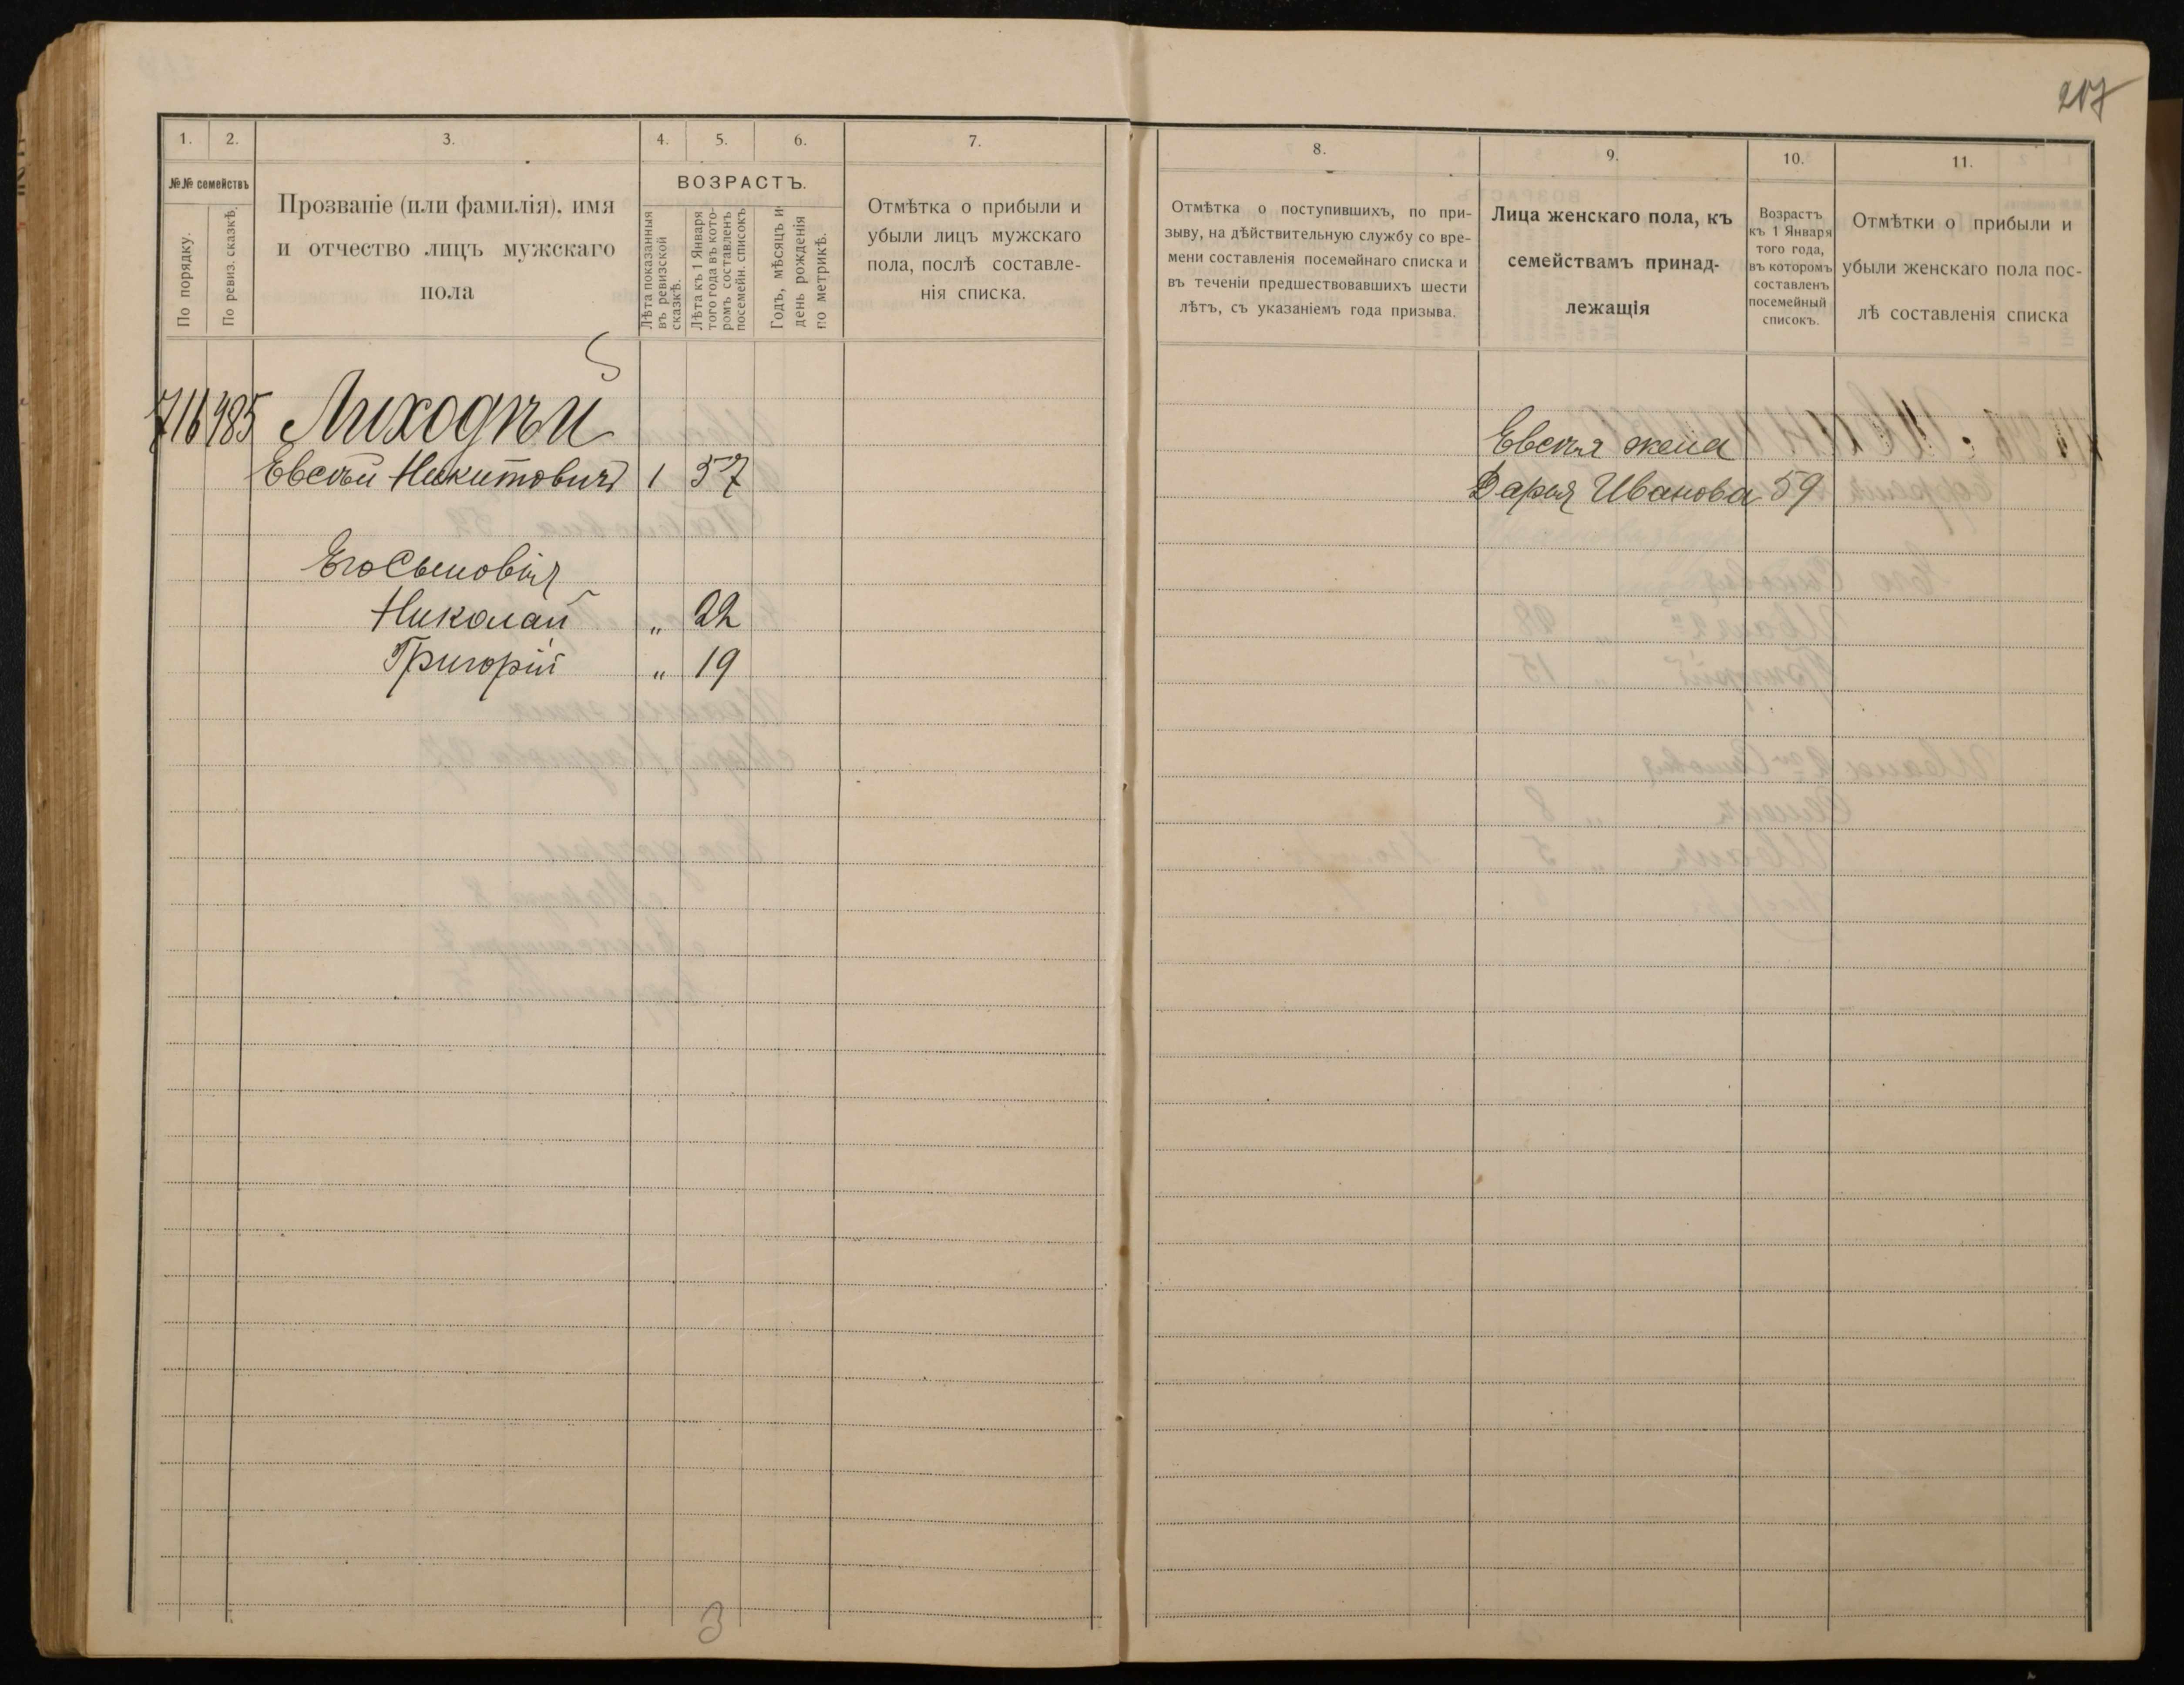 217
1.
2.
3.
4.
5.
6.
7.
№№ семействъ
По порядку.
По ревиз. сказкѣ.
Прозваніе (или фамилія), имя
и отчество лицъ мужскаго
пола
ВОЗРАСТЪ.
Лѣта показанныя
въ ревизской
сказкѣ.
Лѣта къ 1 Января
того года въ кото-
ромъ составленъ
посемейн. списокъ
Годъ, мѣсяцъ и
день рожденія
по метрикѣ.
Отмѣтка о прибыли и
убыли лицъ мужскаго
пола, послѣ составле-
нія списка.
716 985 Лиходѣй
Евсѣй Никитовичъ 1 57
Его Сыновія
Николай " 22
Григорій " 19
3
8.
9.
10.
11.
Отмѣтка о поступившихъ, по при-
зыву, на дѣйствительную службу со вре-
мени составленія посемейнаго списка и
въ теченіи предшествовавшихъ шести
лѣтъ, съ указаніемъ года призыва.
Лица женскаго пола, къ
семействамъ принад-
лежащія
Возрастъ
къ 1 Января
того года,
въ которомъ
составленъ
посемейный
списокъ.
Отмѣтки о прибыли и
убыли женскаго пола пос-
лѣ составленія списка
Евсѣя жена
Дарья Иванова 59